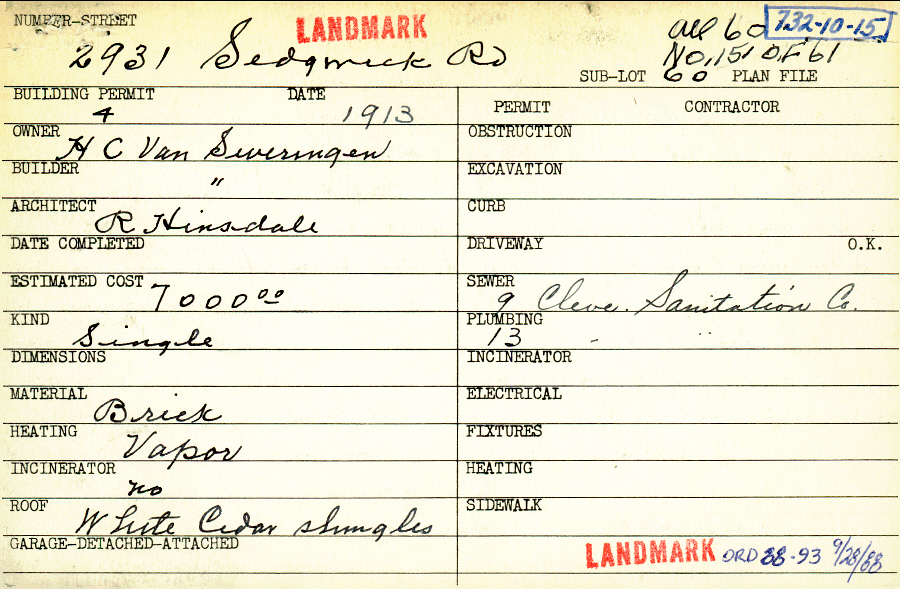 NUMBER-STREET LANDMARK All 60 732-10-15
2931 Sedgwick Rd No. 15 O.F 61
SUB-LOT 60 PLAN FILE
BUILDING PERMIT DATE PERMIT CONTRACTOR
4 1913
OWNER H C Van Sweringen OBSTRUCTION
BUILDER " EXCAVATION
ARCHITECT R Hinsdale CURB
DATE COMPLETED DRIVEWAY O.K.
ESTIMATED COST 7000 00 SEWER 9 Cleve. Sanitation Co.
KIND Single PLUMBING 13 - "
DIMENSIONS INCINERATOR
MATERIAL Brick ELECTRICAL
HEATING Vapor FIXTURES
INCINERATOR no HEATING
ROOF White Cedar shingles SIDEWALK
GARAGE-DETACHED-ATTACHED
LANDMARK ORD 88-93 9/28/88